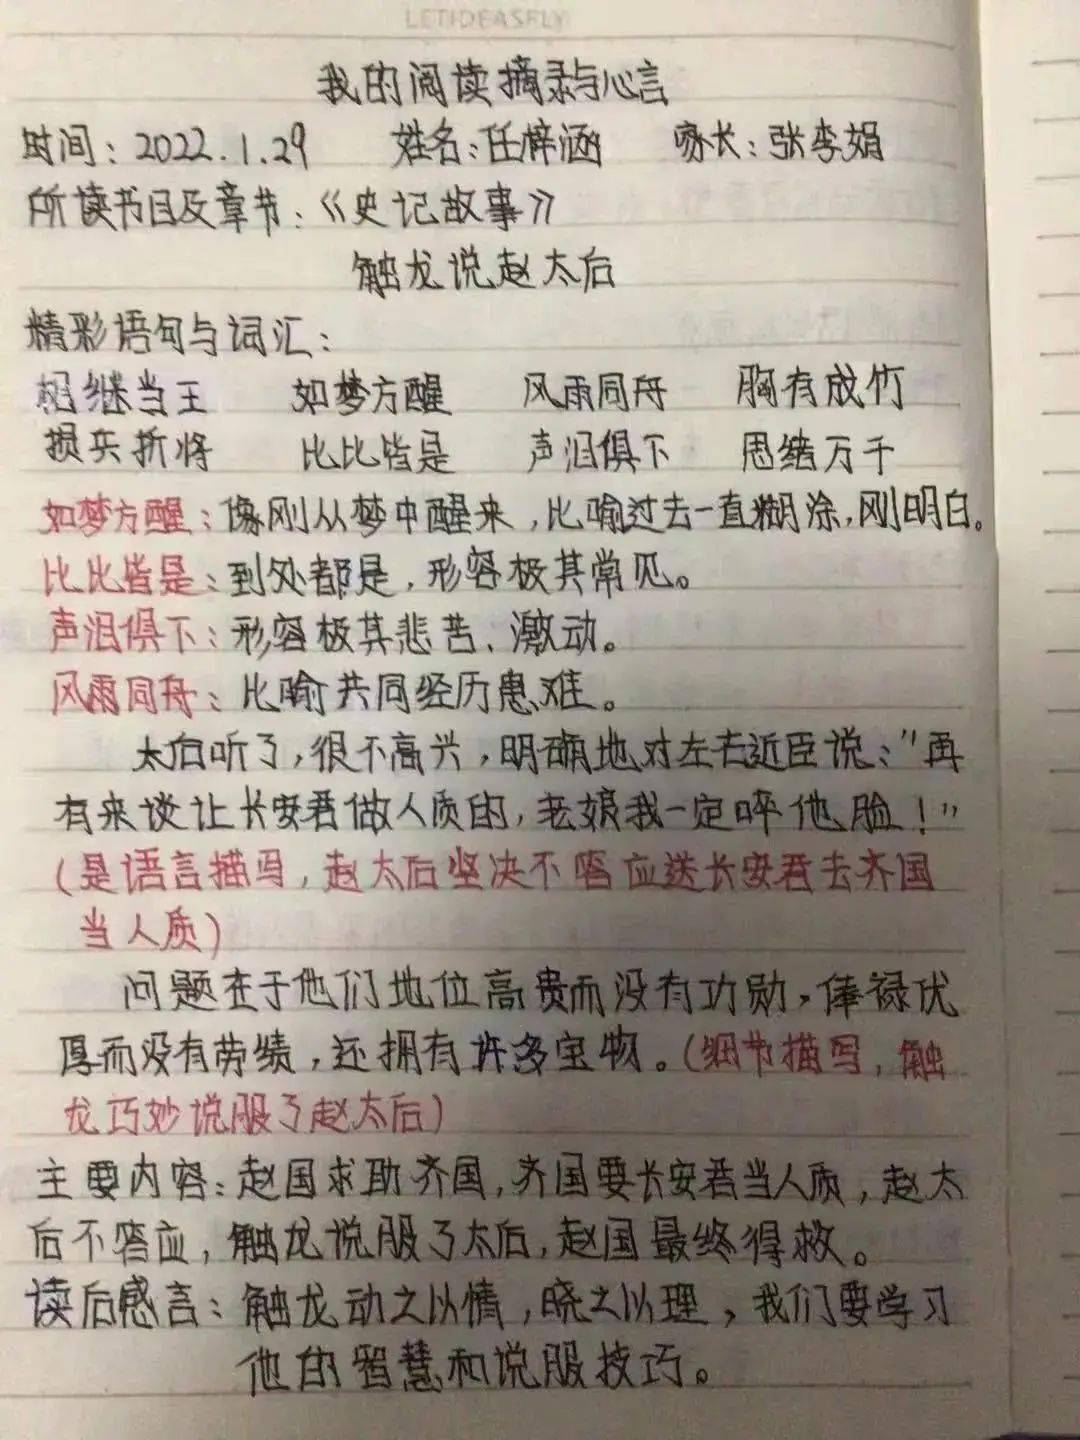 LETIDEASFLY
我的阅读摘录与心言
时间：2022.1.29 姓名：任梓涵 家长：张李娟
所读书目及章节：《史记故事》
触龙说赵太后
精彩语句与词汇：
相继当王 如梦方醒 风雨同舟 胸有成竹
损兵折将 比比皆是 声泪俱下 思绪万千
如梦方醒：像刚从梦中醒来，比喻过去一直糊涂，刚明白。
比比皆是：到处都是，形容极其常见。
声泪俱下：形容极其悲苦、激动。
风雨同舟：比喻共同经历患难。
太后听了，很不高兴，明确地对左右近臣说："再
有来谈让长安君做人质的，老娘我一定啐他脸！"
（是语言描写，赵太后坚决不答应送长安君去齐国
当人质）
问题在于他们地位高贵而没有功勋，俸禄优
厚而没有劳绩，还拥有许多宝物。（细节描写，触
龙巧妙说服了赵太后）
主要内容：赵国求助齐国，齐国要长安君当人质，赵太
后不答应，触龙说服了太后，赵国最终得救。
读后感言：触龙动之以情，晓之以理，我们要学习
他的智慧和说服技巧。